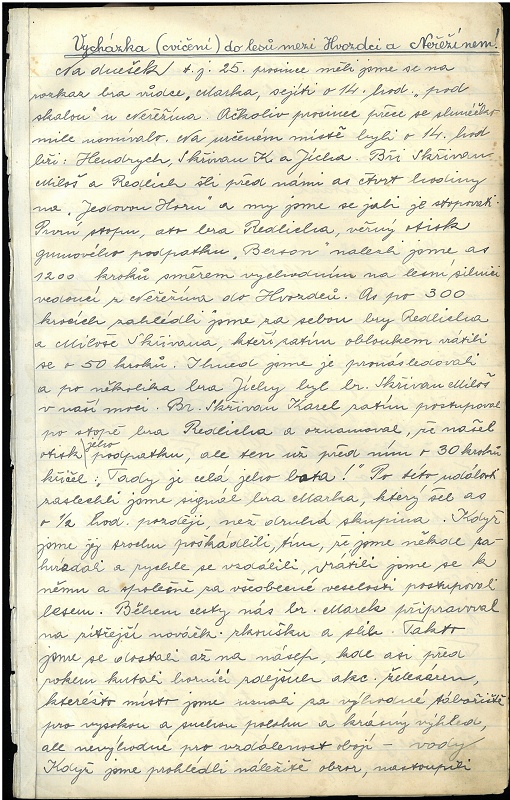 Vycházka (cvičení) do lesů mezi Hvozdci a Neřežínem!
Na dnešek t. j. 25. prosince měli jsme se na
rozkaz bra vůdce „Marka„ sejíti o 14. hod. „pod
skalou" u Neřežína. Ačkoliv prosinec přece se sluníčko
mile usmívalo. Na určeném místě byli o 14. hod
bři: Hendrych, Skřivan K. a Jícha. Bři Skřivan
Miloš a Redlich šli před námi as čtvrt hodiny
na „Jedovou Horu" a my jsme se jali je stopovati.
První stopu, ato bra Redlicha, věrný otisk
gumového podpatku „Berson" nalezli jsme as
1200 kroků směrem východním na lesní silnici
vedoucí z Neřežína do Hvozdců. As po 300
krocích zahlédli jsme za sebou bry Redlicha
a Miloše Skřivana, kteří zatím obloukem vrátili
se o 50 kroků. Ihned jsme je pronásledovali
a po několika bra Jíchy byl br. Skřivan Miloš
v naší moci. Br. Skřivan Karel zatím postupoval
po stopě bra Redlicha a oznamoval, že našel
otisk jeho podpatku, ale ten už před ním o 30 kroků
křičel: „Tady je celá jeho bota!" Po této události
zaslechli jsme signál bra Marka, který šel as
o 1/2 hod. později, než druhá skupina. Když
jsme jej trochu poškádlili, tím, že jsme někde za-
hvízdali a rychle se vzdálili, vrátili jsme se k
němu a společně za všeobecné veselosti postupovali
lesem. Během cesty nás br. Marek připravoval
na zítřejší nováčk. zkoušku a slib. Takto
jsme se dostali až na násep, kde asi před
rokem kutali horníci zdejších akc. železáren,
kteréžto místo jsme uznali za výhodné tábořiště
pro vysokou a suchou polohu a krásný výhled,
ale nevýhodné pro vzdálenost obojí – vody
Když jsme prohlédli náležitě obzor, nastoupili